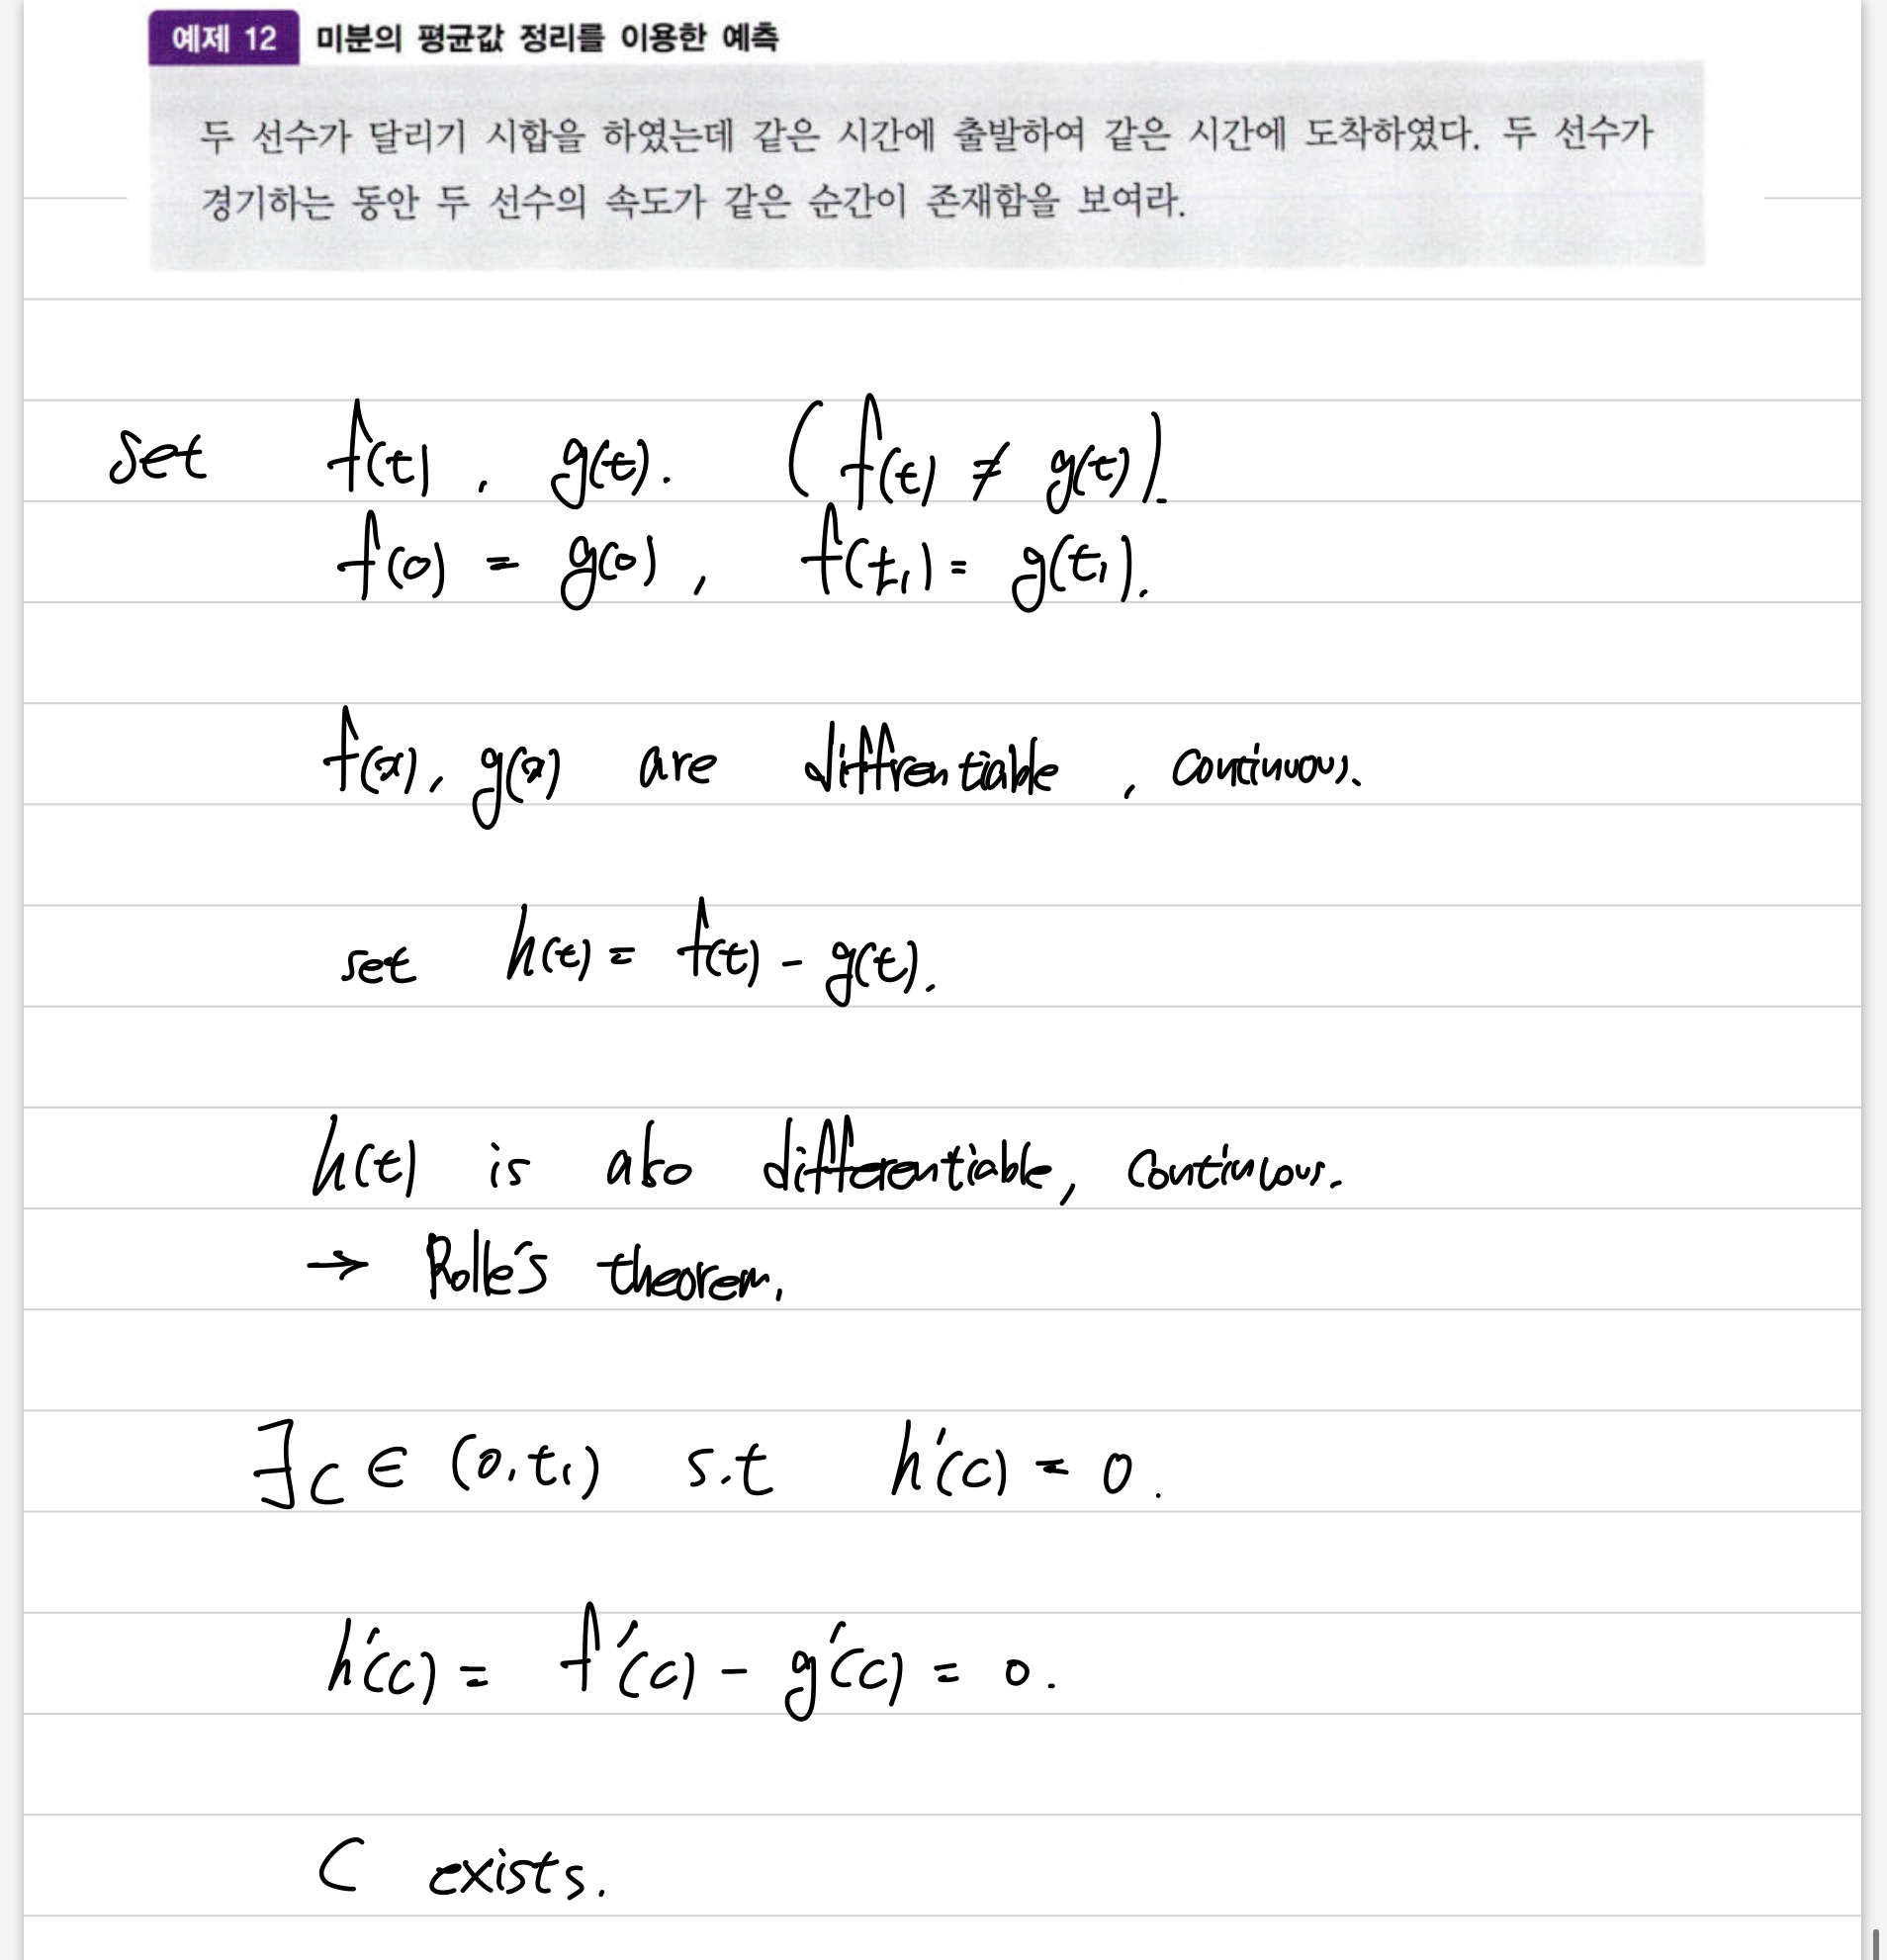 예제 12 미분의 평균값 정리를 이용한 예측
두 선수가 달리기 시합을 하였는데 같은 시간에 출발하여 같은 시간에 도착하였다. 두 선수가
경기하는 동안 두 선수의 속도가 같은 순간이 존재함을 보여라.
set f(t), g(t). (f(t) ≠ g(t)).
f(0) = g(0), f(t₁) = g(t₁).
f(x), g(x) are diffrentiable, continuous.
set h(t) = f(t) - g(t).
h(t) is also differentiable, continuous.
→ Rolle's theorem,
∃c ∈ (0, t₁) s.t h'(c) = 0.
h'(c) = f'(c) - g'(c) = 0.
C exists.